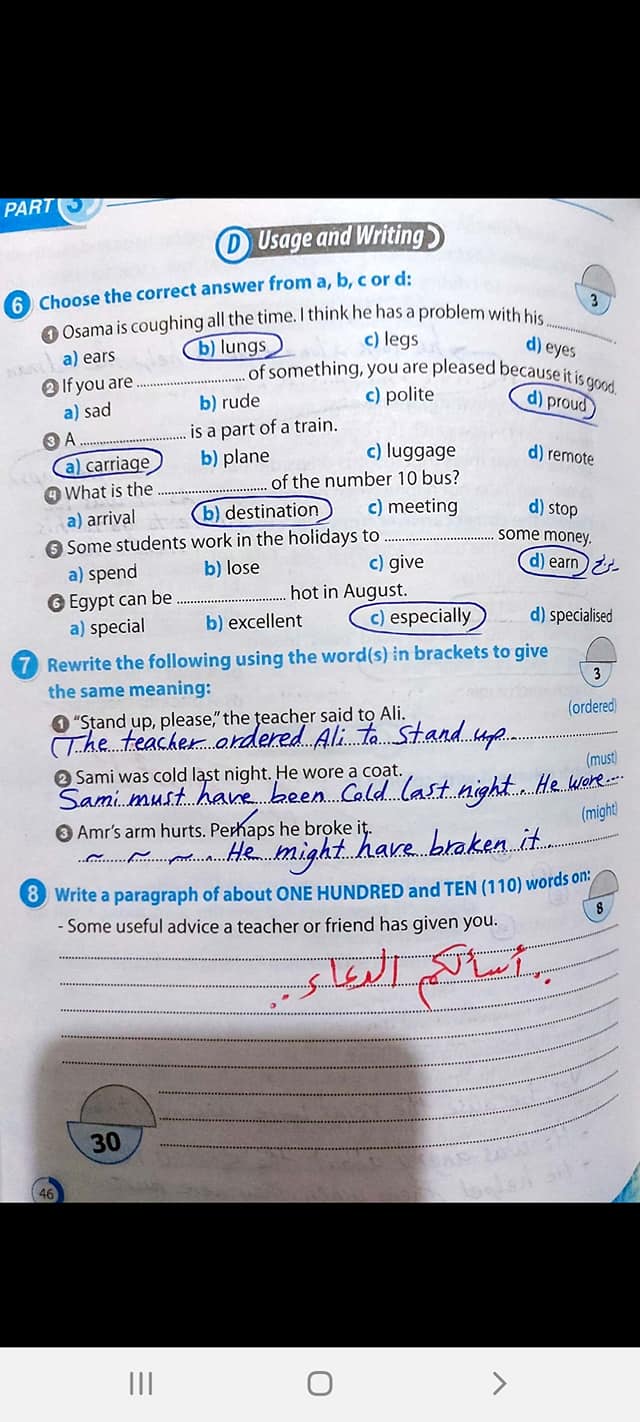 PART 3
D Usage and Writing
6 Choose the correct answer from a, b, c or d:
3
1 Osama is coughing all the time. I think he has a problem with his ..............
a) ears b) lungs c) legs d) eyes
2 If you are .............. of something, you are pleased because it is good.
a) sad b) rude c) polite d) proud
3 A .............. is a part of a train.
a) carriage b) plane c) luggage d) remote
4 What is the .............. of the number 10 bus?
a) arrival b) destination c) meeting d) stop
5 Some students work in the holidays to .............. some money.
a) spend b) lose c) give d) earn
6 Egypt can be .............. hot in August.
a) special b) excellent c) especially d) specialised
7 Rewrite the following using the word(s) in brackets to give
the same meaning:
3
1 “Stand up, please,” the teacher said to Ali. (ordered)
The teacher ordered Ali to stand up
2 Sami was cold last night. He wore a coat. (must)
Sami must have been Cold last night. He wore...
3 Amr's arm hurts. Perhaps he broke it. (might)
~ ~ ~ . He might have broken it.
8 Write a paragraph of about ONE HUNDRED and TEN (110) words on:
8
- Some useful advice a teacher or friend has given you.
..أسألكم الدعاء..
30
46